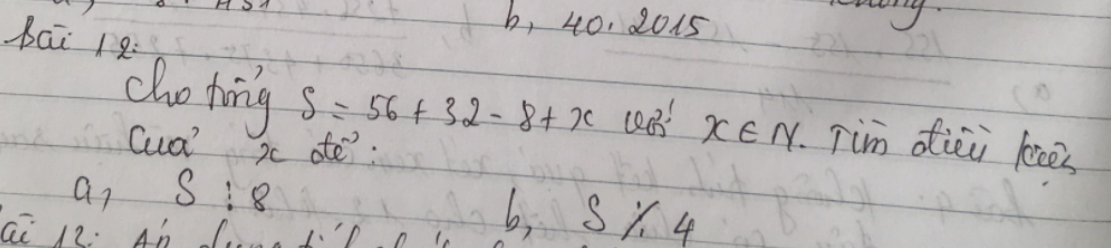 b, 40. 2015
Bài 12:
Cho tổng S = 56 + 32 - 8 + x với x ∈ N. Tìm điều kiện
Của x để:
a, S ⋮ 8 b, S ⋮̸ 4
ài 13: Áp dụng